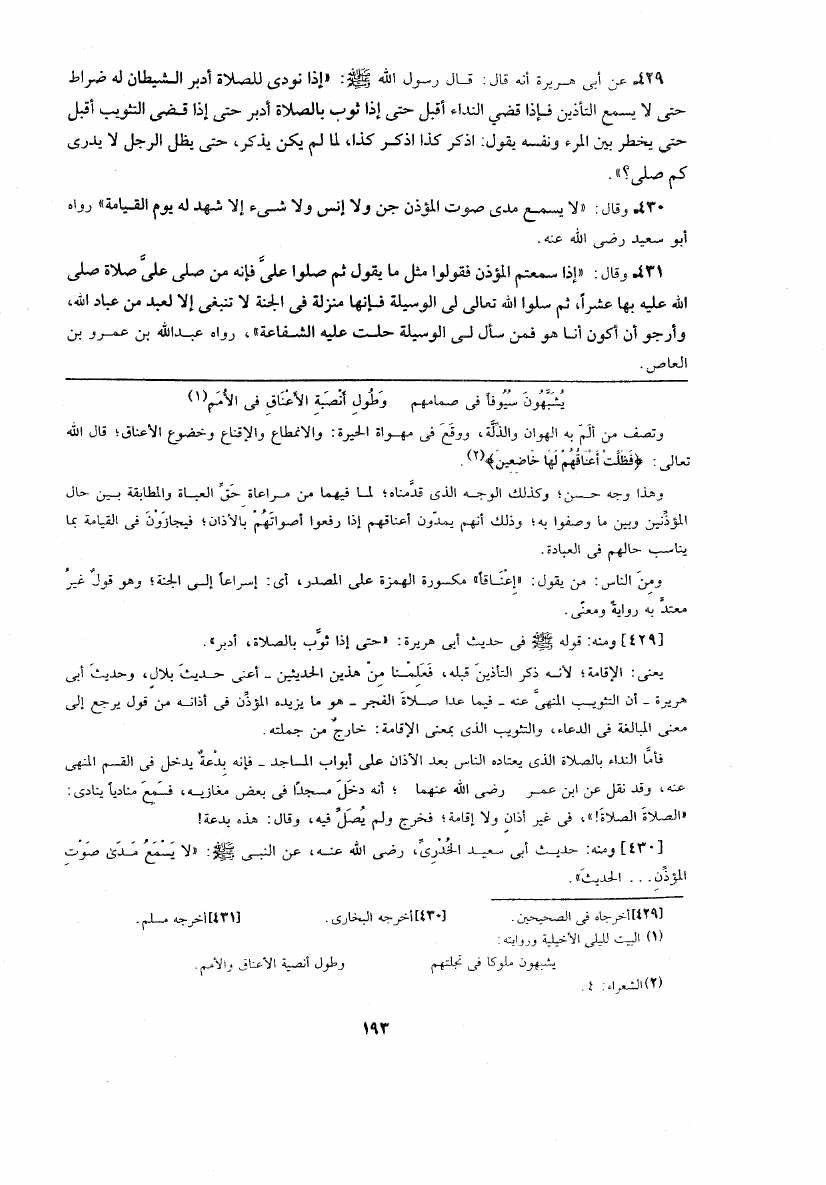 ٤٢٩ـ عن أبى هريرة أنه قال: قال رسول الله ﷺ: «إذا نودى للصلاة أدبر الشيطان له ضراط
حتى لا يسمع التأذين فإذا قضي النداء أقبل حتى إذا ثوب بالصلاة أدبر حتى إذا قضى التثويب أقبل
حتى يخطر بين المرء ونفسه يقول: اذكر كذا اذكر كذا، لما لم يكن يذكر، حتى يظل الرجل لا يدرى
كم صلى؟».
٤٣٠ـ وقال: «لا يسمع مدى صوت المؤذن جن ولا إنس ولا شىء إلا شهد له يوم القيامة» رواه
أبو سعيد رضى الله عنه.
٤٣١ـ وقال: «إذا سمعتم المؤذن فقولوا مثل ما يقول ثم صلوا علىَّ فإنه من صلى علىَّ صلاة صلى
الله عليه بها عشراً، ثم سلوا الله تعالى لى الوسيلة فإنها منزلة فى الجنة لا تنبغى إلا لعبد من عباد الله،
وأرجو أن أكون أنا هو فمن سأل لى الوسيلة حلت عليه الشفاعة»، رواه عبدالله بن عمرو بن
العاص.
يُشَبَّهُونَ سيُوفاً فى صمامهم وَطُولِ أنْصَبَةِ الأعْنَاقِ فى الأُمَم(١)
وتصف من ألَمَّ به الهوان والذلَّة، ووقَعَ فى مهواة الحيرة: والانمطاع والإقناع وخضوع الأعناق؛ قال الله
تعالى: ﴿فَظَلَّتْ أَعْنَاقُهُمْ لَهَا خَاضِعِينَ﴾(٢).
وهذا وجه حسن؛ وكذلك الوجه الذى قدَّمناه؛ لما فيهما من مراعاة حَقِّ العباة والمطابقة بين حال
المؤذِّنين وبين ما وصفوا به؛ وذلك أنهم يمدّون أعناقهم إذا رفعوا أصواتَهُمْ بالأذان؛ فيجازَوْنَ فى القيامة بما
يناسب حالهم فى العبادة.
ومِنَ الناس: من يقول: «إِعْنَاقاً» مكسورة الهمزة على المصدر، أى: إسراعاً إلى الجنة؛ وهو قولٌ غيرُ
معتدٍّ به روايةً ومعنًى.
[٤٢٩] ومنه: قوله ﷺ فى حديث أبى هريرة: «حتى إذا ثوَّب بالصلاة، أدبر».
يعنى: الإقامة؛ لأنه ذكر التأذينَ قبله، فَعَلِمْنا مِنْ هذين الحديثين - أعنى حديثَ بلالٍ، وحديثَ أبى
هريرة - أن التثويب المنهىَّ عنه - فيما عدا صلاةَ الفجر - هو ما يزيده المؤذِّن فى أذانه من قول يرجع إلى
معنى المبالغة فى الدعاء، والتثويب الذى بمعنى الإقامة: خارجٌ من جملته.
فأمَّا النداء بالصلاة الذى يعتاده الناس بعد الأذان على أبواب المساجد - فإنه بِدْعةٌ يدخل فى القسم المنهى
عنه، وقد نقل عن ابن عمر رضى الله عنهما ؛ أنه دخَلَ مسجدًا فى بعض مغازيه، فسَمِعَ منادياً ينادى:
«الصلاةَ الصلاةَ!»، فى غير أذانٍ ولا إقامة؛ فخرج ولم يُصَلِّ فيه، وقال: هذه بدعة!
[٤٣٠] ومنه: حديث أبى سعيد الخُدْرِىِّ، رضى الله عنه، عن النبى ﷺ: «لا يَسْمَعُ مَدَىٰ صَوْتِ
المؤذِّنِ... الحديثَ».
[٤٢٩] أخرجاه فى الصحيحين. [٤٣٠] أخرجه البخارى. [٤٣١] أخرجه مسلم.
(١) البيت لليلى الأخيلية وروايته:
يشبهون ملوكا فى تجلتهم وطول أنضية الأعناق والأمم.
(٢) الشعراء: ٤.
١٩٣